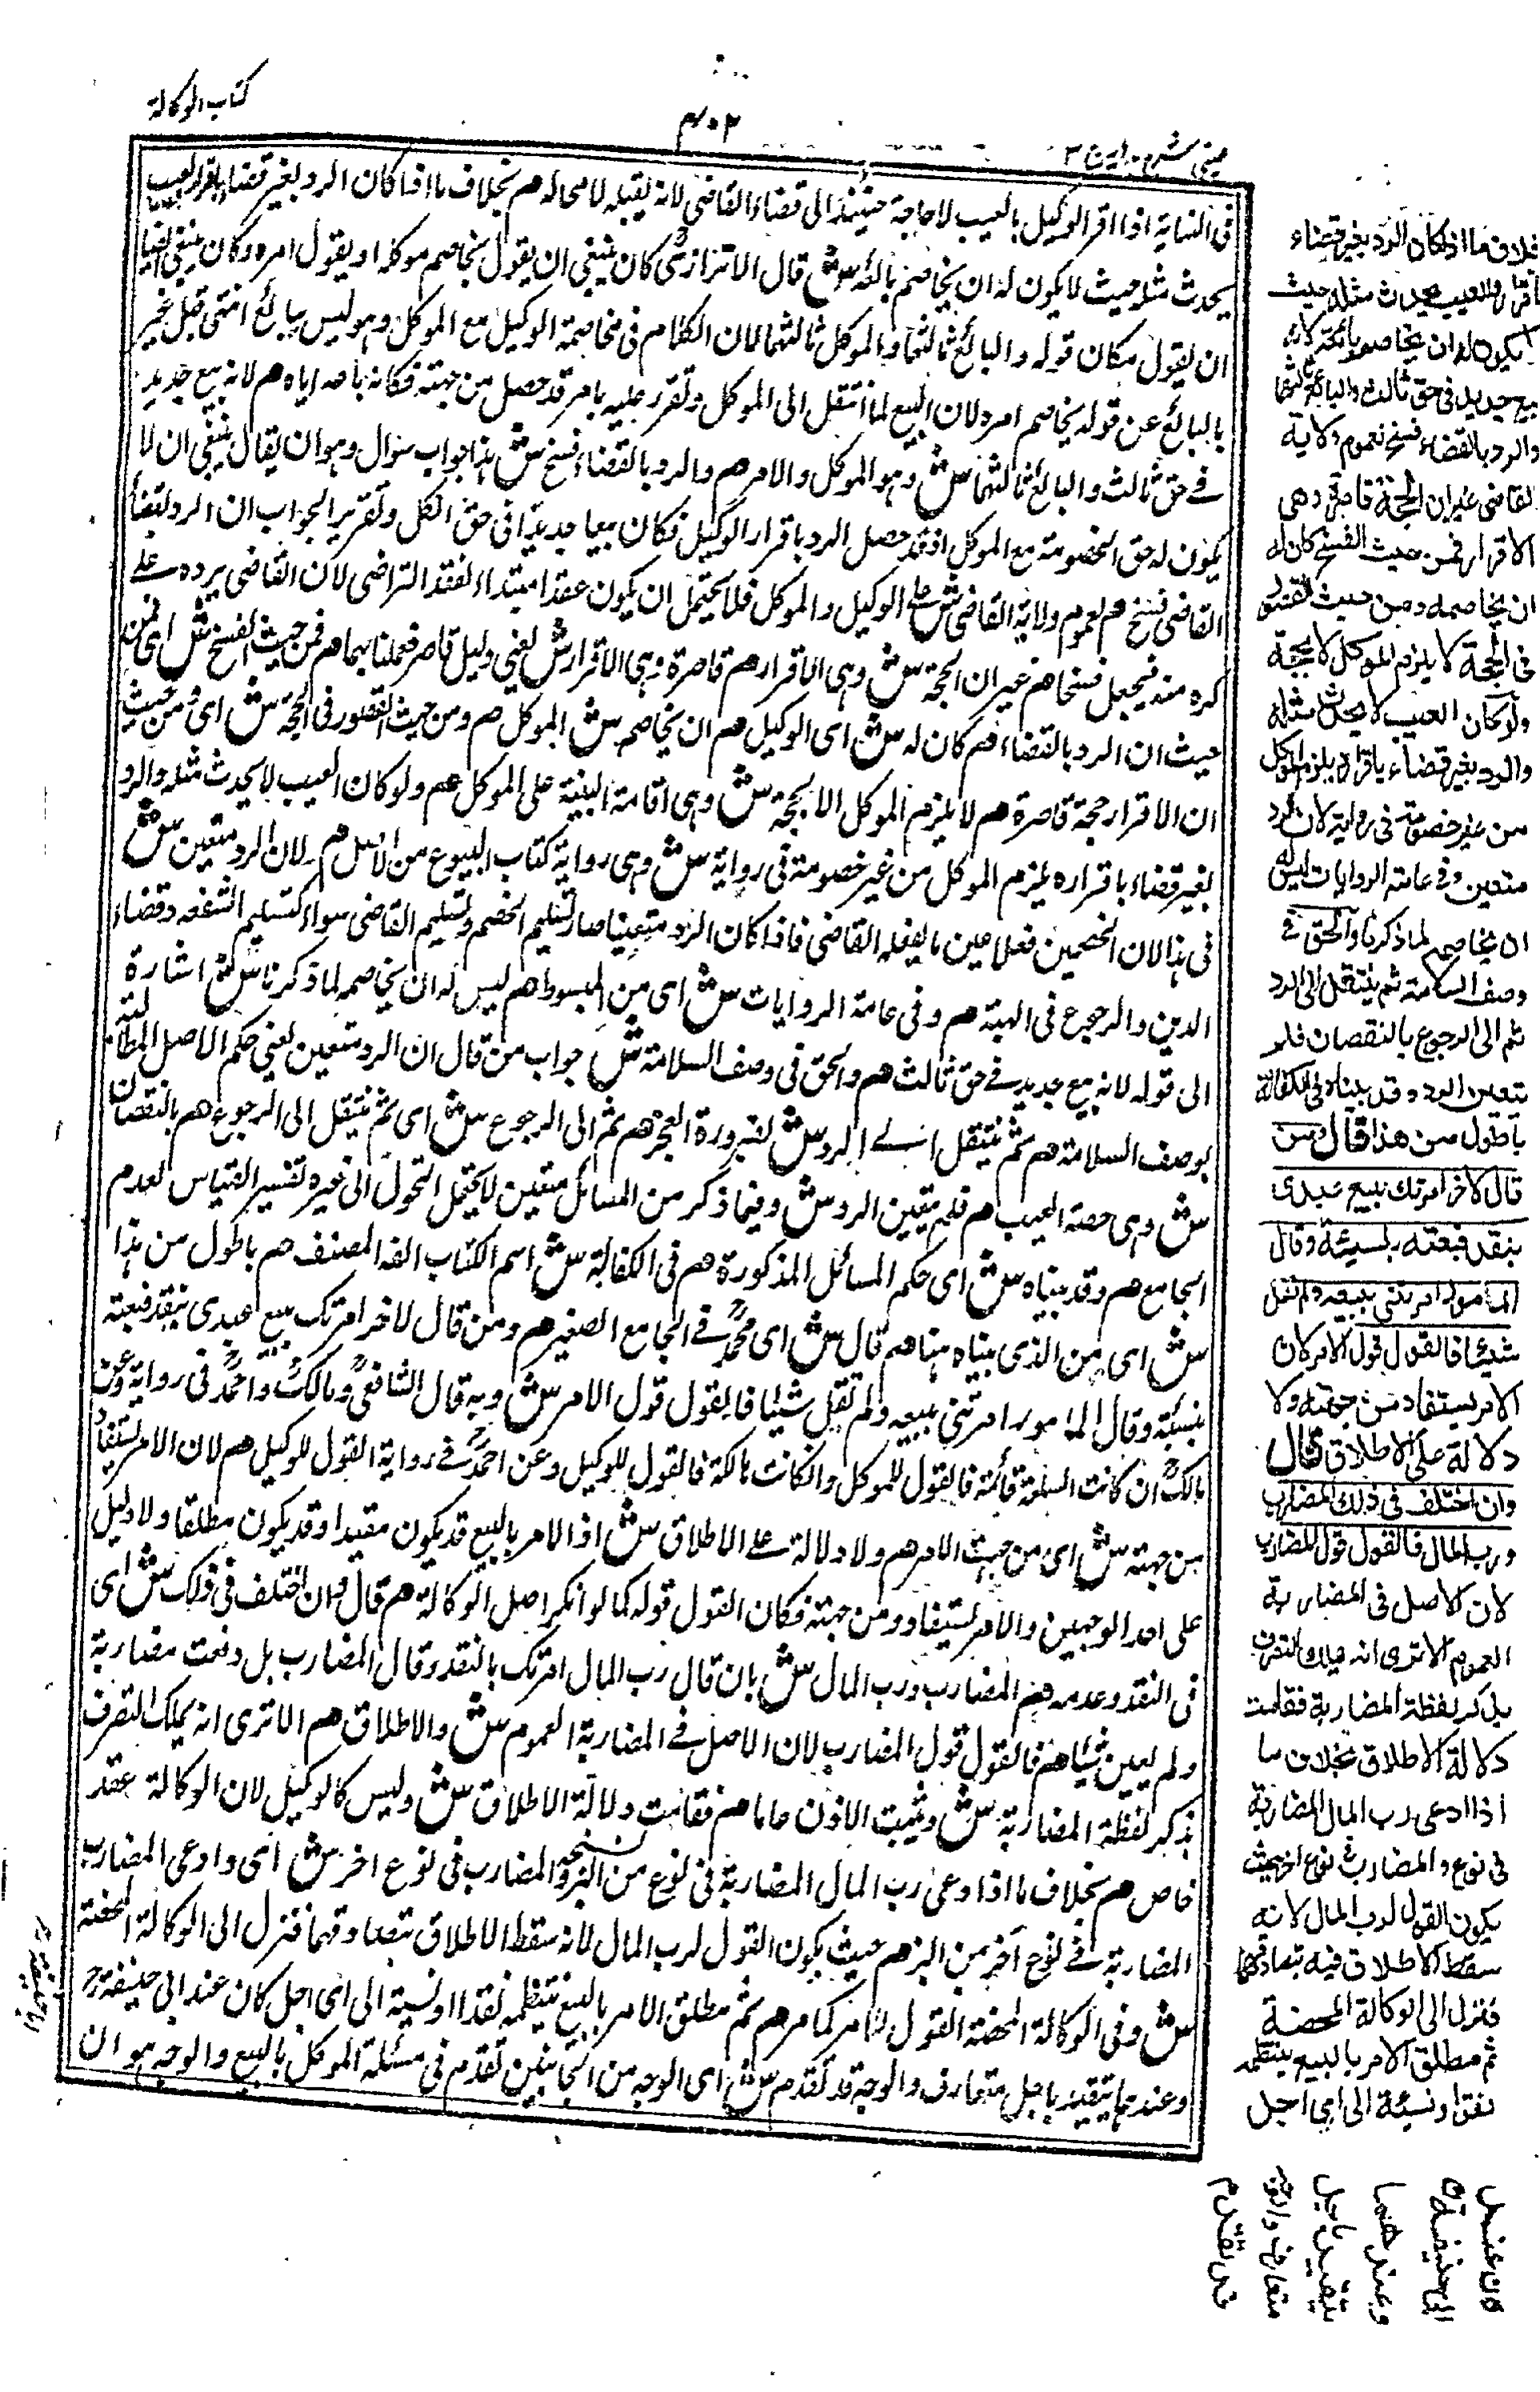 كتاب الوكالة
٤٠٢
عينى شرح هداية ج ٣
فى النهاية اذا اقر الوكيل بالعيب لا حاجة حينئذ الى قضاء القاضى لانه يقبله لا محالة هم بخلاف ما اذا كان الرد بغير قضاء باقراره والعيب
يحدث مثله حيث لا يكون له ان يخاصم بائعه ش قال الاترازى كان ينبغى ان يقول يخاصم موكله او يقول امره وكان ينبغى ايضا
ان يقول مكان قوله والبائع ثالثهما والموكل ثالثهما لان الكلام فى مخاصمة الوكيل مع الموكل وهو ليس ببائع انتهى قيل عبر
بالبائع عن قوله يخاصم امره لان المبيع لما انتقل الى الموكل وتقرر عليه بامر قد حصل من جهته فكانه باعه اياه هم لانه بيع جديد
فے حق ثالث والبائع ثالثهما ش وهو الموكل والامر هم والرد بالقضاء فسخ ش هذا جواب سؤال وهو ان يقال ينبغى ان لا
يكون له حق الخصومة مع الموكل اذ قد حصل الرد باقرار الوكيل فكان بيعا جديدا فى حق الكل وتقرير الجواب ان الرد بقضاء
القاضى فسخ هم لعموم ولاية القاضى ش علے الوكيل والموكل فلا يحتمل ان يكون عقدا مبتداء لفقد التراضى لان القاضى يرده علے
كره منه فيجعل فسخا هم غير ان الحجة ش وهى الاقرار هم قاصرة وهى الاقرار ش يعنى دليل قاصر فعملنا بهما هم فمن حيث الفسخ ش اى فمن
حيث ان الرد بالقضاء هم كان له ش اى الوكيل هم ان يخاصم ش الموكل هم ومن حيث القصور فى الحجة ش اى ومن حيث
ان الاقرار حجة قاصرة هم لا يلزم الموكل الا بحجة ش وهى اقامة البينة على الموكل هم ولو كان العيب لا يحدث مثله والرد
بغير قضاء باقراره يلزم الموكل من غير خصومة فى رواية ش وهى رواية كتاب البيوع من الاصل هم لان الرد متعين ش
فى هذا لان الخصمين فعلا عين ما يفعله القاضى فاذا كان الرد متعينا صار تسليم الخصم وتسليم القاضى سواء كتسليم الشفعه وقضاء
الدين والرجوع فى الهبة هم وفى عامة الروايات ش اى من المبسوط هم ليس له ان يخاصمه لما ذكرنا ش اشارة
الى قوله لانه بيع جديد فے حق ثالث هم والحق فى وصف السلامة ش جواب من قال ان الرد متعين يعنى حكم الاصل المطالبة
بوصف السلامة هم ثم ينتقل الے الرد ش لضرورة العجز هم ثم الى الرجوع ش اى ثم ينتقل الى الرجوع هم بالنقصان
ش وهى حصة العيب هم فلم يتعين الرد ش وفيما ذكر من المسائل متعين لا يحتمل التحول الى غيره تفسير القياس لعدم
الجامع هم وقد بيناه ش اى حكم المسائل المذكورة هم فى الكفاية ش اسم الكتاب الفه المصنف هم باطول من هذا
ش اى من الذى بيناه هنا هم قال ش اى محمد فے الجامع الصغير هم ومن قال لاخر امرتك ببيع عبدى بنقد فبعته
بنسيئة وقال المامور امرتنى ببيعه ولم تقل شيئا فالقول قول الامر ش وبه قال الشافعى ومالك واحمد فى رواية وعن
مالك ان كانت السلعة قائمة فالقول للموكل وان كانت هالكة فالقول للوكيل وعن احمد فے رواية القول للوكيل هم لان الامر يستفاد
من جهته ش اى من جهة الامر هم ولا دلالة علے الاطلاق ش اذ الامر بالبيع قد يكون مقيدا وقد يكون مطلقا ولا دليل
على احد الوجهين والامر يستفاد ومن جهته فكان القول قوله كما لو انكر اصل الوكالة هم قال وان اختلف فى ذلك ش اى
فى النقد وعدمه هم المضارب ورب المال ش بان قال رب المال امرتك بالنقد وقال المضارب بل دفعت مضاربة
ولم يعين شيئا هم فالقول قول المضارب لان الاصل فے المضاربة العموم ش والاطلاق هم الا ترى انه يملك التصرف
بذكر لفظة المضاربة ش ويثبت الاذن عاما هم فقامت دلالة الاطلاق ش وليس كالوكيل لان الوكالة عقد
خاص هم بخلاف ما اذا ادعى رب المال المضاربة فى نوع من البز والمضارب فى نوع اخر ش اى وادعى المضارب
المضاربة فے نوع آخر من البز هم حيث يكون القول لرب المال لانه سقط الاطلاق بتصادقهما فنزل الى الوكالة المحضة
ش وفى الوكالة المحضة القول للآمر كما مر هم ثم مطلق الامر بالبيع ينتظمه نقدا ونسيئة الى اى اجل كان عند ابى حنيفة رح
وعندهما يتقيد باجل متعارف والوجه قد تقدم ش اى الوجه من الجانبين تقدم فى مسئلة الموكل بالبيع والوجه هو ان
بخلاف ما اذا كان الرد بغير قضاء
باقراره والعيب يحدث مثله حيث
لا يكون له ان يخاصم بائعه لانه
بيع جديد فى حق ثالث والبائع ثالثهما
والرد بالقضاء فسخ لعموم ولاية
القاضى غير ان الحجة قاصرة وهى
الاقرار فمن حيث الفسخ كان له
ان يخاصمه ومن حيث القصور
فى الحجة لا يلزم الموكل الا بحجة
ولو كان العيب لا يحدث مثله
والرد بغير قضاء باقراره يلزم الموكل
من غير خصومة فى رواية لان الرد
متعين وفى عامة الروايات ليس له
ان يخاصمه لما ذكرنا والحق فى
وصف السلامة ثم ينتقل الى الرد
ثم الى الرجوع بالنقصان فلم
يتعين الرد وقد بيناه فى الكفاية
باطول من هذا قال ومن
قال لاخر امرتك ببيع عبدى
بنقد فبعته بنسيئة وقال
المامور امرتنى ببيعه ولم تقل
شيئا فالقول قول الامر لان
الامر يستفاد من جهته ولا
دلالة على الاطلاق قال
وان اختلف فى ذلك المضارب
ورب المال فالقول قول المضارب
لان الاصل فى المضاربة
العموم الا ترى انه يملك التصرف
بذكر لفظة المضاربة فقامت
دلالة الاطلاق بخلاف ما
اذا ادعى رب المال المضاربة
فى نوع والمضارب فى نوع اخر حيث
يكون القول لرب المال لانه
سقط الاطلاق فيه بتصادقهما
فنزل الى الوكالة المحضة
ثم مطلق الامر بالبيع ينتظمه
نقدا ونسيئة الى اى اجل
كان عند
ابى حنيفة رح
وعندهما
يتقيد باجل
متعارف والوجه
قد تقدم